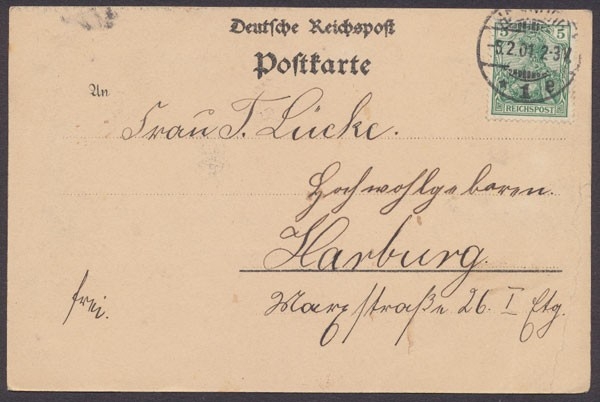 Deutsche Reichspost
Postkarte
An
Frau T. Lücke.
Hochwohlgeboren.
Harburg.
Marxstraße 26. I Etg.
frei.
5 5
5.2.01. 2-3N.
* 1 e
REICHSPOST